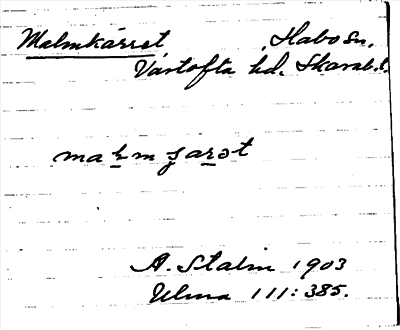 Malmkärret, Habo sn.
Vartofta hd. Skarab.l.
malm ʃarət
A. Stalin 1903
Ulma 111:385.